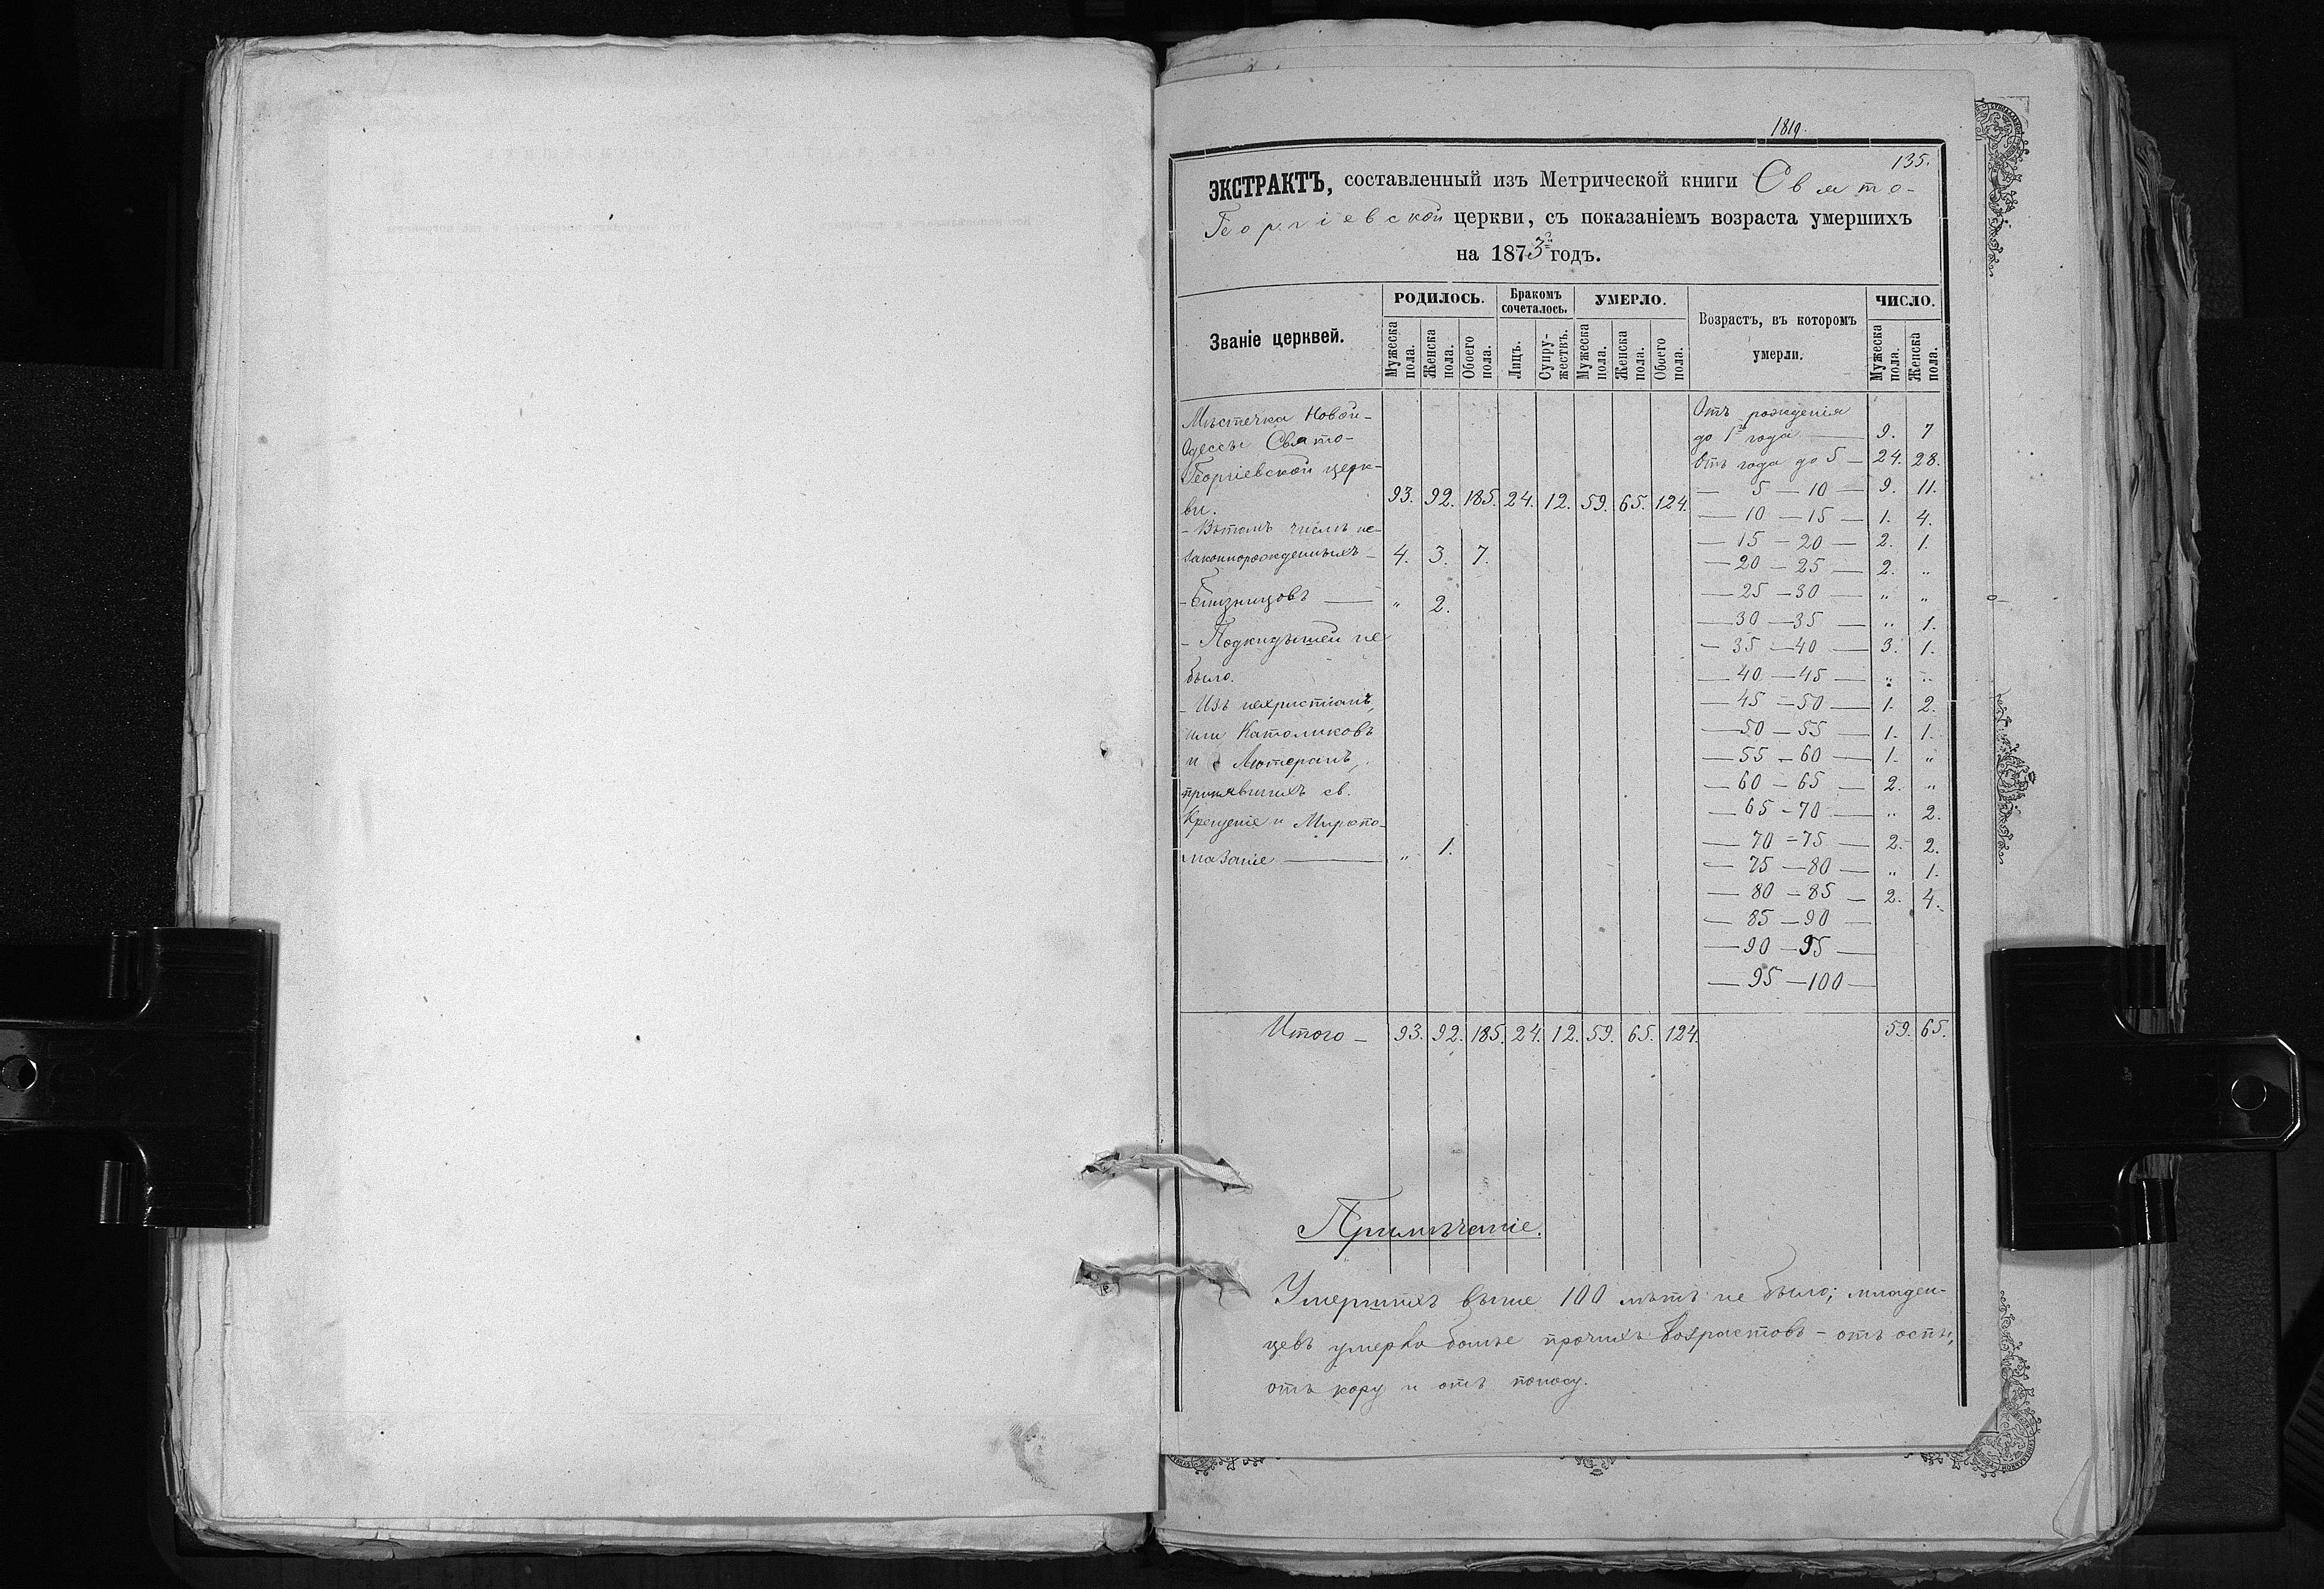 1819.
135.
ЭКСТРАКТЪ, составленный изъ Метрической книги Свято-
Георгіевской церкви, съ показаніемъ возраста умершихъ
на 1873й годъ.
Званіе церквей.
РОДИЛОСЬ. Бракомъ сочеталось. УМЕРЛО. Возрастъ, въ которомъ умерли. ЧИСЛО.
Мужеска пола. Женска пола. Обоего пола. Лицъ. Супружествъ. Мужеска пола. Женска пола. Обоего пола. Мужеска пола. Женска пола.
Мѣстечка Новой-
Одессы Свято-
Георгіевской церк-
ви. 93. 92. 185. 24. 12. 59. 65. 124.
- Вътомъ числѣ не-
законнорожденныхъ - 4. 3. 7.
- Близнецовъ — " 2.
- Подкидышей не
было.
- Изъ нехристіанъ,
или Католиковъ
и Лютеранъ,
принявшихъ св.
Крещеніе и Миропо-
мазаніе — " 1.
Отъ рожденія
до 1го года — 9. 7
Отъ года до 5 — 24. 28.
— 5 — 10 — 9. 11.
— 10 — 15 — 1. 4.
— 15 — 20 — 2. 1.
— 20 — 25 — 2. "
— 25 — 30 — " "
— 30 — 35 — " 1.
— 35 — 40 — 3. 1.
— 40 — 45 — " "
— 45 — 50 — 1. 2.
— 50 — 55 — 1. 1.
— 55 — 60 — 1. "
— 60 — 65 — 2. "
— 65 — 70 — " 2.
— 70 — 75 — 2. 2.
— 75 — 80 — " 1.
— 80 — 85 — 2. 4.
— 85 — 90 —
— 90 — 95 —
— 95 — 100 —
Итого — 93. 92. 185. 24. 12. 59. 65. 124. 59. 65.
Примѣчаніе.
Умершихъ выше 100 лѣтъ не было; младен-
цевъ умерло болѣе прочихъ возрастовъ - отъ оспы,
отъ кору и отъ поносу.